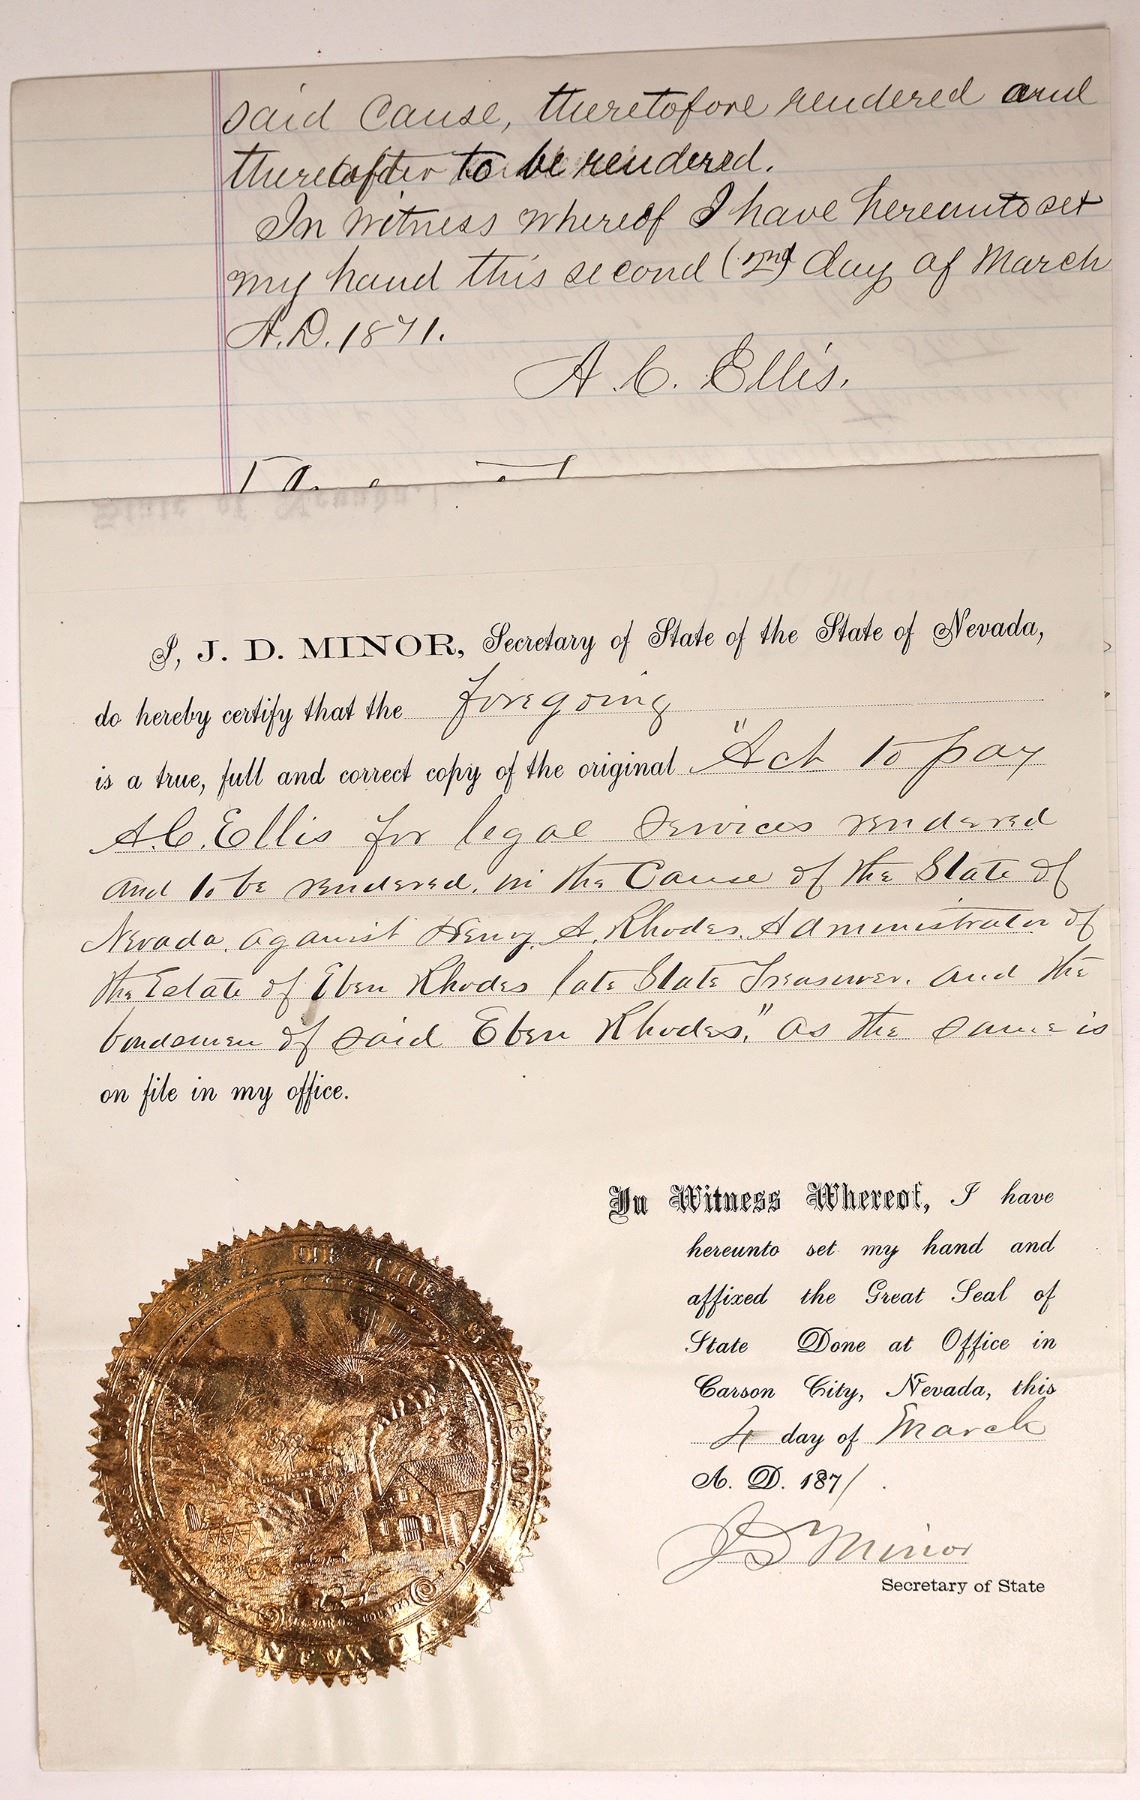 said Cause, theretofore rendered and
thereafter to be rendered.
In witness whereof I have hereunto set
my hand this second (2nd) day of March
A.D. 1871.
A. C. Ellis.
I, J. D. MINOR, Secretary of State of the State of Nevada,
do hereby certify that the foregoing
is a true, full and correct copy of the original "Act to pay
A.C. Ellis for legal services rendered
and to be rendered, in the Cause of the State of
Nevada against Henry A. Rhodes Administrator of
the Estate of Eben Rhodes late State Treasurer, and the
bondsmen of said Eben Rhodes," as the same is
on file in my office.
In Witness Whereof, I have
hereunto set my hand and
affixed the Great Seal of
State Done at Office in
Carson City, Nevada, this
4 day of March
A. D. 1871.
J D Minor
Secretary of State
OF THE STATE OF
NEVADA
COUNTRY